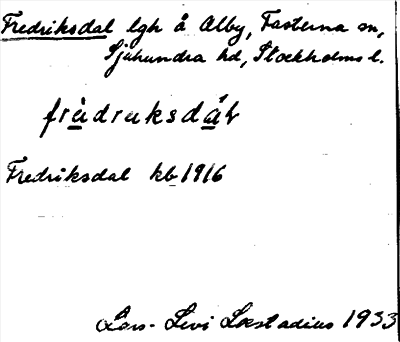 Fredriksdal lgh å Alby, Fasterna sn,
Sjuhundra hd, Stockholms l.
fràdruksdáɫ
Fredriksdal kb 1916
Lars-Levi Læstadius 1933